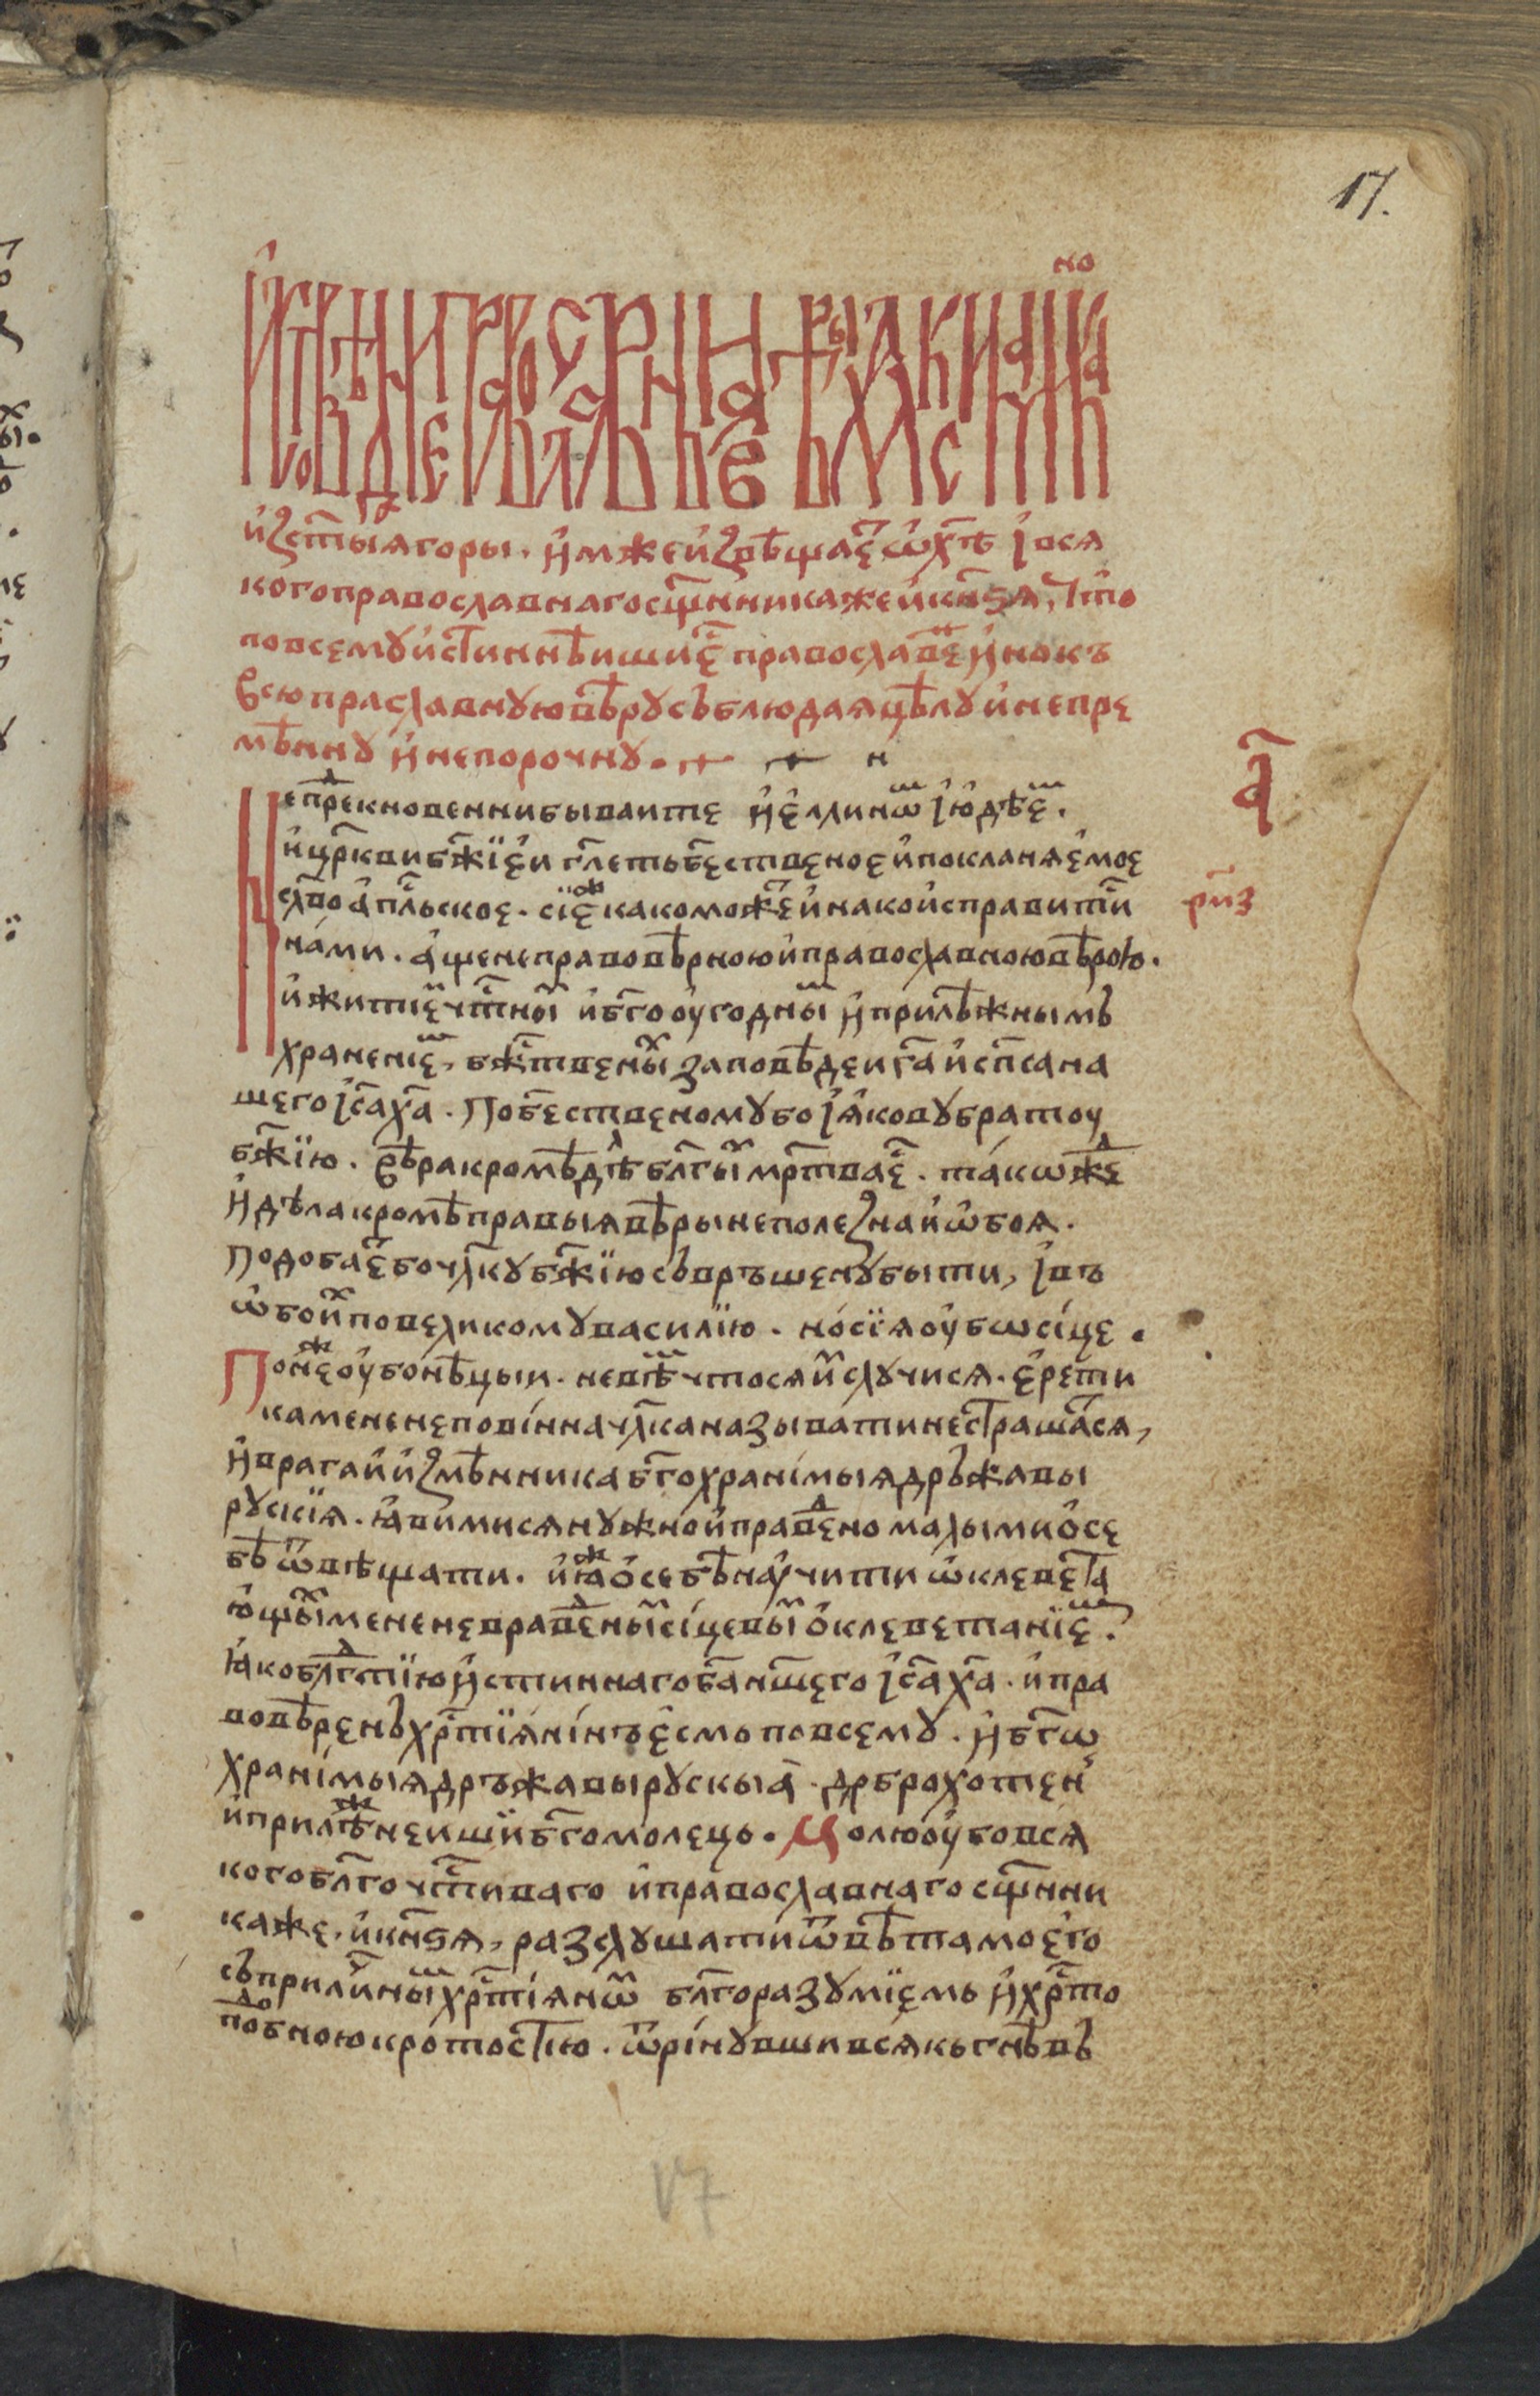 17.
но
и҆ꙁ ст҃ыѧ горы . и҆мже и҆ꙁвѣщаеⷮ ѡ҆ хⷭ҇тѣ і҆ вся
кого православнаго сщ҃енникаже и҆ кн҃ѕя , ꙗ҆ко по
по всемꙋ и҆стиннѣишиⷨ҇ есть православеⷩ и҆нокъ
всю праславнꙋю вѣрꙋ съблюдая цѣлꙋ и҆ непре
мѣннꙋ и҆ непорочнꙋ .
Непреⷣкновенни бываите и҆ е҆ллиноⷨ і҆ ю҆дѣеⷨ .
и҆ цр҃кви бж҃їеи гл҃еть бж҃ественое и҆ покланяемое
сло҃во а҆пⷭ҇льское . сїеⷤ како можеⷮ и҆нако и҆справитиⷭ
нами . а҆ще не правовѣрною и҆ православною вѣрою .
и҆ житиеⷨ чⷭ҇тныⷨ и҆ бг҃оугодныⷨ и҆ прилѣжнымъ
хранениеⷨ , бж҃твеныⷯ заповѣдеи гⷭ҇а и҆ сп҃са на
шего і҆с҃а хⷭ҇а . По бж҃ественомꙋ бо і҆яковꙋ братоу
бж҃їю . вѣра кромѣ дѣⷧ бл҃гыⷯ мр҃тва еⷭ҇ . такожⷣе
и҆ дѣла кромѣ правыя вѣры не полеꙁна и҆ ѡ҆боя .
Подобаеⷮ бо чл҃кꙋ бж҃їю съвръшенꙋ быти , і҆ въ
ѡ҆боиⷯ по великомꙋ василїю . но сїя оу҆бо сіце .
Понеⷤ оу҆бо нѣцыи . не вѣⷨ что ся и҆ⷨ слꙋчися . е҆рети
ка мене неповінна чл҃ка называти не страшаⷮся ,
и҆ врага и҆ и҆ꙁмѣнника бг҃охранімыя дръжавы
рꙋсскїя . ꙗ҆ви ми ся нꙋжно и҆ правеⷣно малыми о҆ се
бѣ ѿвѣщати . и҆ ꙗⷤ о҆ себѣ наꙋчити ѡ҆клевета
ю҆щыⷯ мене неправеⷣныⷨ сіцевыⷨ о҆клеветаніеⷨ .
ꙗ҆ко блг҃дтїю и҆стиннаго бг҃а нш҃его і҆с҃а хⷭ҇а . и҆ пра
вовѣренъ хрⷭ҇тїянінъ е҆смь по всемꙋ . и҆ бг҃о
хранімыя дръжавы рꙋскыа . доброхотенⷩ
и҆ прилѣⷤнеишїи бг҃омолець . Молю оу҆бо вся
кого блг҃очтⷭ҇иваго и҆ православнаго сщ҃енни
каже , и҆ кн҃ѕя , разслꙋшати ѿвѣта моего
съ приличныⷨ хрⷭ҇тіяноⷨ блг҃оразꙋмїемь и҆ хрⷭ҇то
поⷣбною кротостїю . ѿрінꙋвши всякь гнѣвъ
а҃
рнз
17